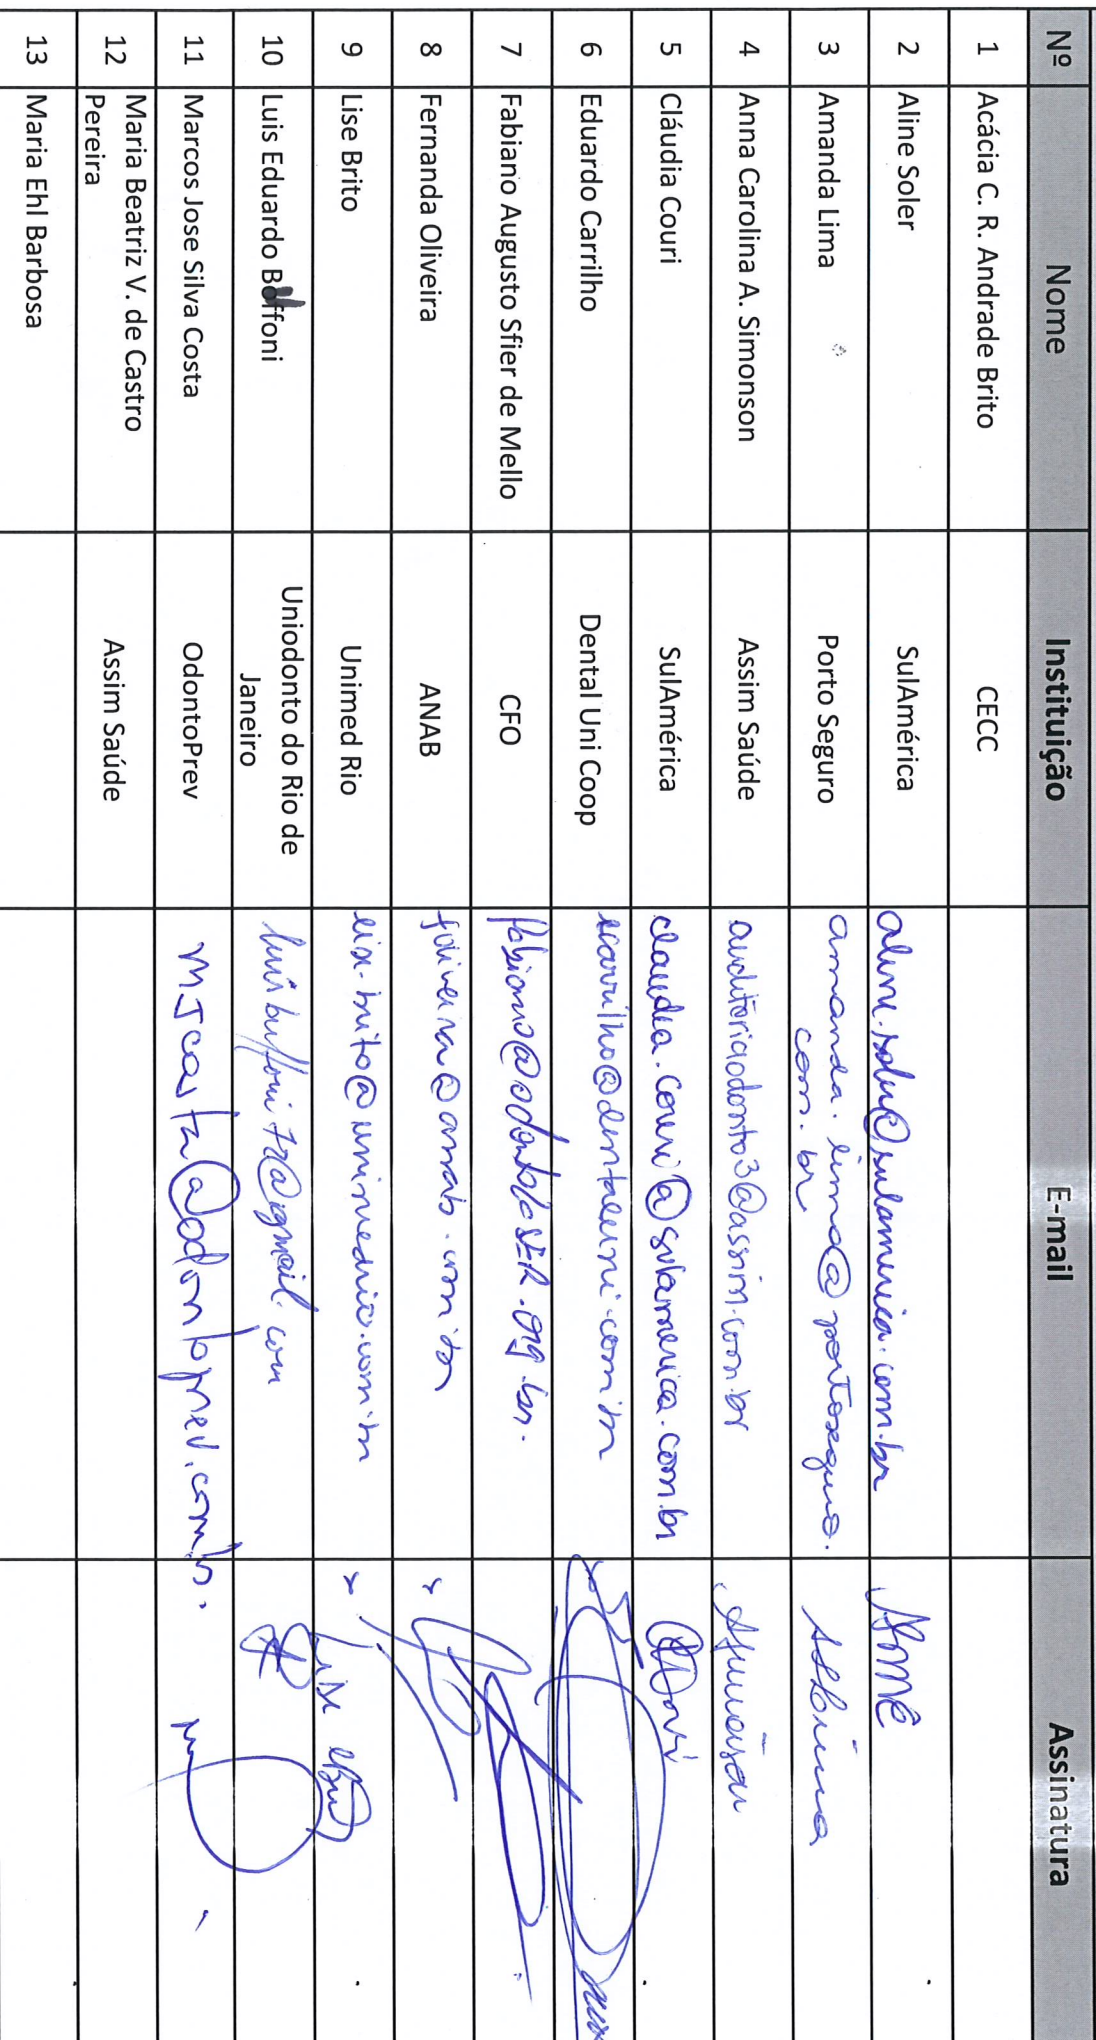 Nº Nome Instituição E-mail Assinatura
1 Acácia C. R. Andrade Brito CECC
2 Aline Soler SulAmérica aline.soler@sulamerica.com.br
3 Amanda Lima Porto Seguro amanda.lima@portoseguro.
com.br
4 Anna Carolina A. Simonson Assim Saúde auditoriaodonto3@assim.com.br
5 Cláudia Couri SulAmérica claudia.couri@sulamerica.com.br
6 Eduardo Carrilho Dental Uni Coop ecarrilho@dentaluni.com.br
7 Fabiano Augusto Sfier de Mello CFO
8 Fernanda Oliveira ANAB
9 Lise Brito Unimed Rio lise.brito@unimedrio.com.br Lise Brito
10 Luis Eduardo Boffoni Uniodonto do Rio de
Janeiro
11 Marcos Jose Silva Costa OdontoPrev mjcosta@odontoprev.com.br.
12 Maria Beatriz V. de Castro
Pereira Assim Saúde
13 Maria Ehl Barbosa